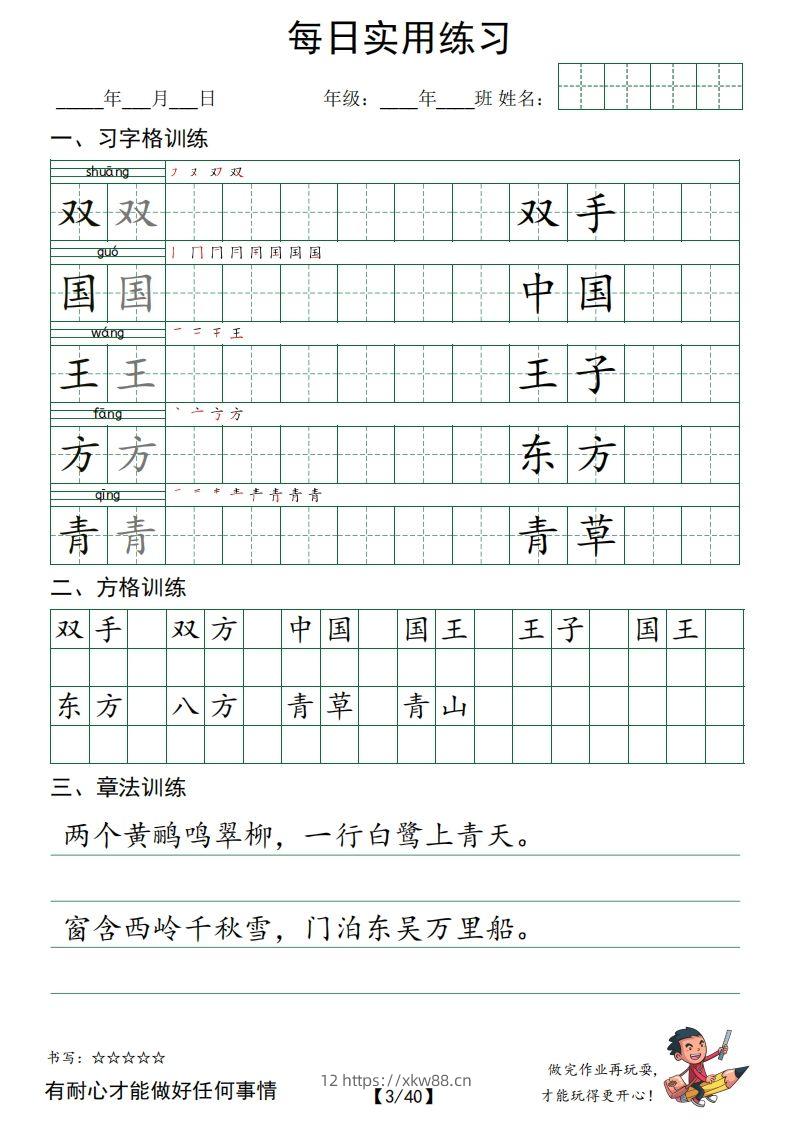 每日实用练习
_____年___月___日 年级：____年____班 姓名：
一、习字格训练
shuāng
双 双 双 手
guó
国 国 中 国
wáng
王 王 王 子
fāng
方 方 东 方
qīng
青 青 青 草
二、方格训练
双手 双方 中国 国王 王子 国王
东方 八方 青草 青山
三、章法训练
两个黄鹂鸣翠柳，一行白鹭上青天。
窗含西岭千秋雪，门泊东吴万里船。
书写：☆☆☆☆☆
有耐心才能做好任何事情
12 https://xkw88.cn
【3/40】
做完作业再玩耍，
才能玩得更开心！